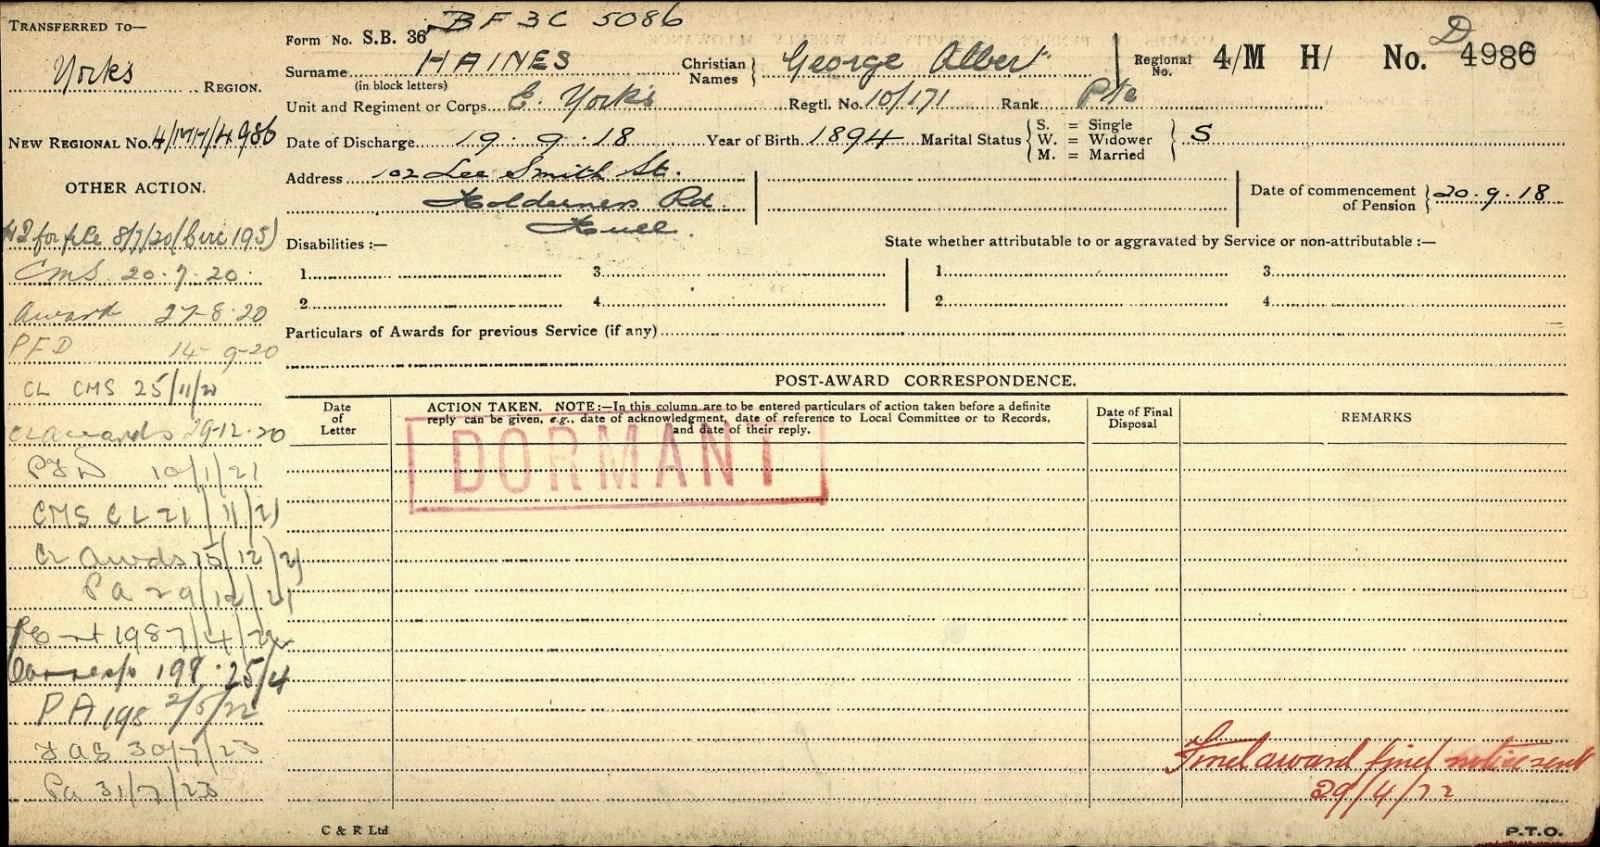 TRANSFERRED TO—
Yorks
REGION.
NEW REGIONAL No. 4/MH/4986
OTHER ACTION.
42 for file 8/7/20 (Circ 195)
CMS 20.7.20.
Award 27-8-20
PFD 14-9-20
CL CMS 25/11/20
CL awards 29-12-20
PFD 10/1/21
CMS CL 21/11/21
CL Awds 15/12/21
Pa 29/12/21
198 7/4/22
198. 25/4
PA 198 2/5/22
FAS 30/7/23
Pa 31/7/23
BF3C 5086
Form No. S.B. 36
Surname HAINES
(in block letters)
Christian Names } George Albert
Regional No. 4/M H/ No. D 4986
Unit and Regiment or Corps E. Yorks Regtl. No. 10/171 Rank Pte
Date of Discharge 19.9.18 Year of Birth 1894 Marital Status { S. = Single
W. = Widower } S
M. = Married
Address 102 Lee Smith St.
Holderness Rd.
Hull.
Date of commencement of Pension } 20.9.18
Disabilities :—
State whether attributable to or aggravated by Service or non-attributable :—
1. 3. 1. 3.
2. 4. 2. 4.
Particulars of Awards for previous Service (if any)
POST-AWARD CORRESPONDENCE.
Date of Letter
ACTION TAKEN. NOTE:—In this column are to be entered particulars of action taken before a definite
reply can be given, e.g., date of acknowledgment, date of reference to Local Committee or to Records,
and date of their reply.
Date of Final Disposal
REMARKS
DORMANT
Final award final notice sent
29/4/22
C & R Ltd
P.T.O.